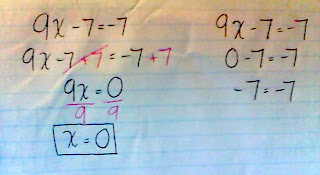 9x-7=-7
9x-7+7=-7+7
9x=0
9 9
x=0
9x-7=-7
0-7=-7
-7=-7